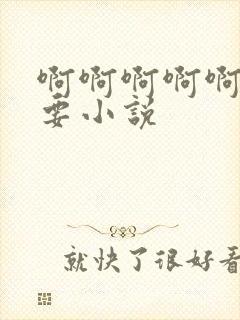 啊啊啊啊啊
要小说
就快了很好看